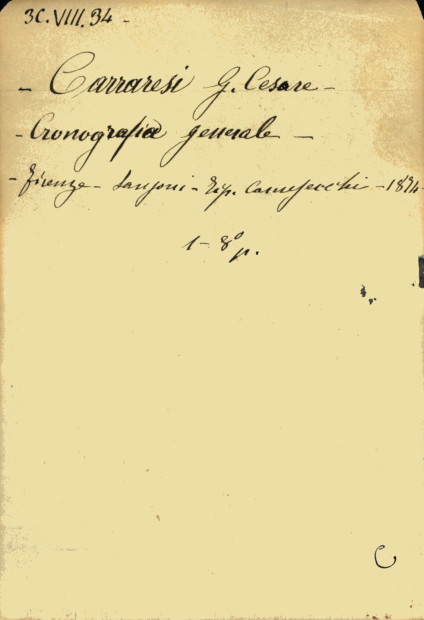 3C.VIII.34 -
- Carraresi G. Cesare -
- Cronografia generale -
- Firenze - Sansoni - Tip. Carnesecchi - 1874 -
1 - 8º p.
C